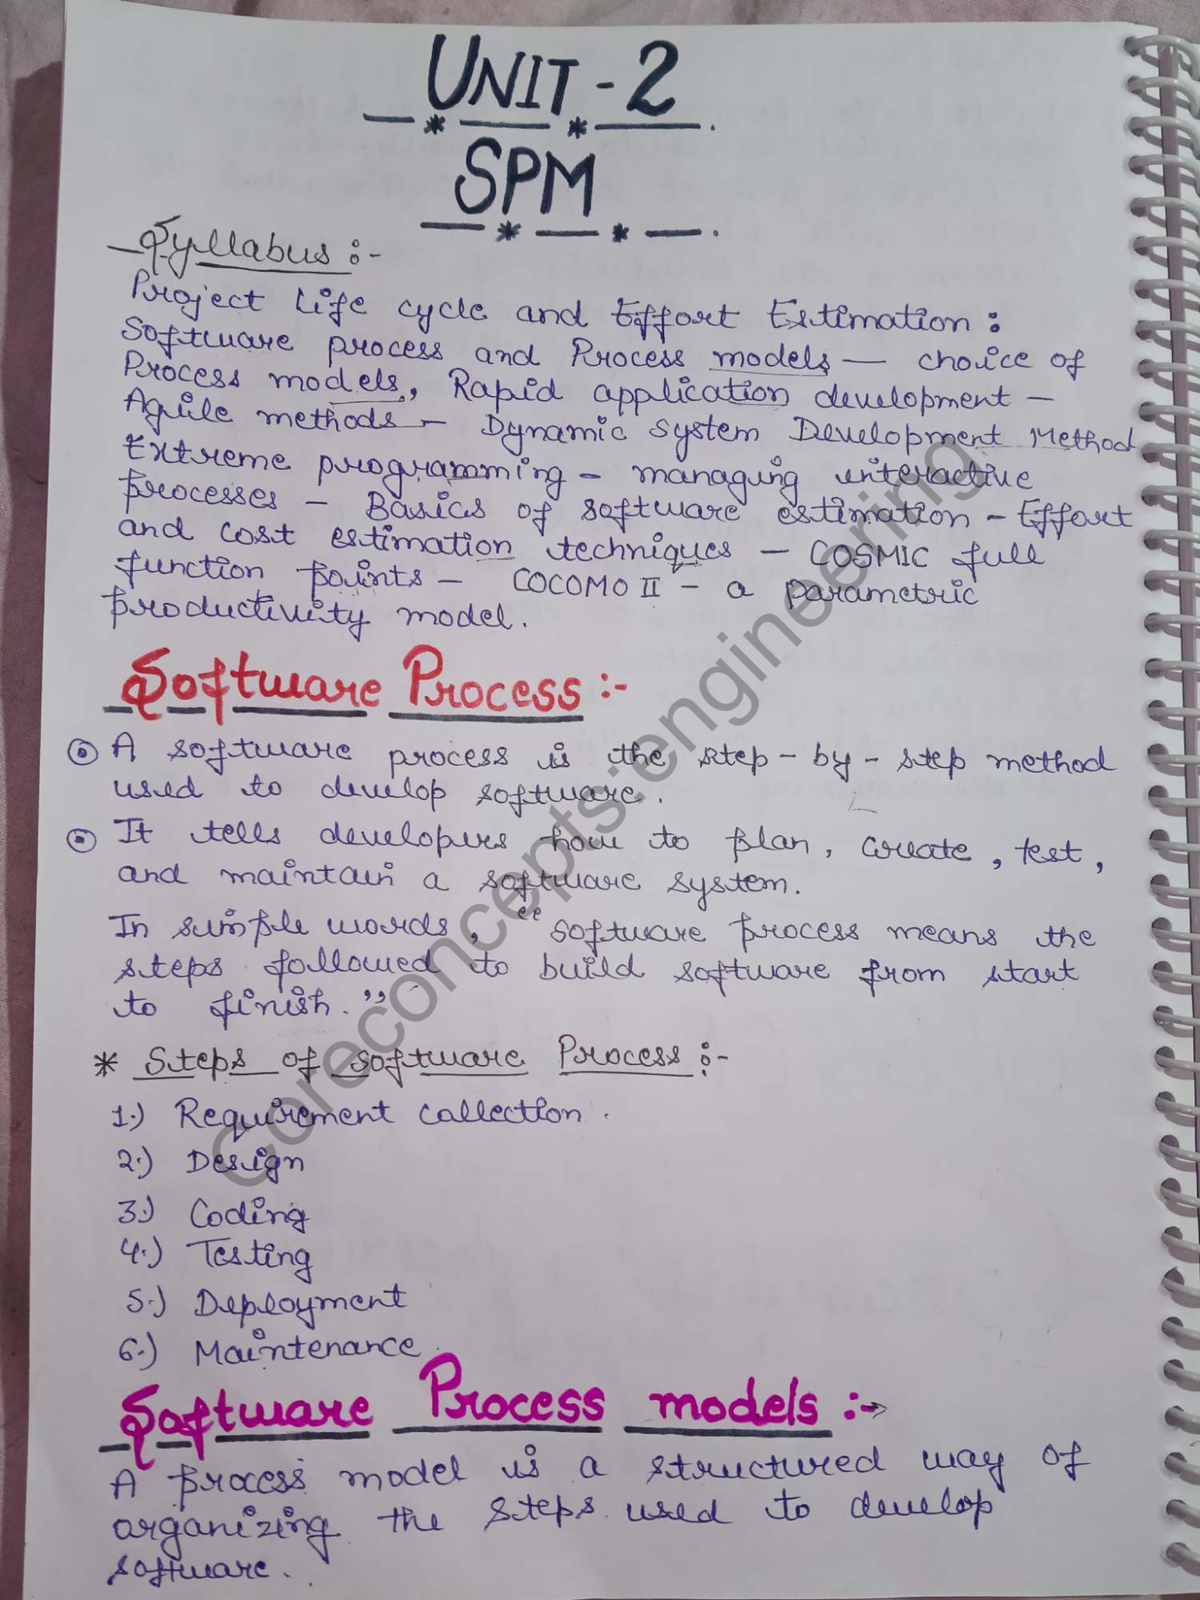 UNIT - 2
SPM
Syllabus :-
Project Life cycle and Effort Estimation :
Software process and Process models — choice of
Process models, Rapid application development —
Agile methods — Dynamic System Development Method
Extreme programming — managing interactive
processes — Basics of software estimation — Effort
and cost estimation techniques — COSMIC full
function points — COCOMO II — a parametric
productivity model.
Software Process :-
A software process is the step - by - step method
used to develop software.
It tells developers how to plan, create, test,
and maintain a software system.
In simple words, “software process means the
steps followed to build software from start
to finish.”
* Steps of software Process :-
1.) Requirement collection.
2.) Design
3.) Coding
4.) Testing
5.) Deployment
6.) Maintenance.
Software Process models :-
A process model is a structured way of
organizing the steps used to develop
software.
Coreconcepts:engineering